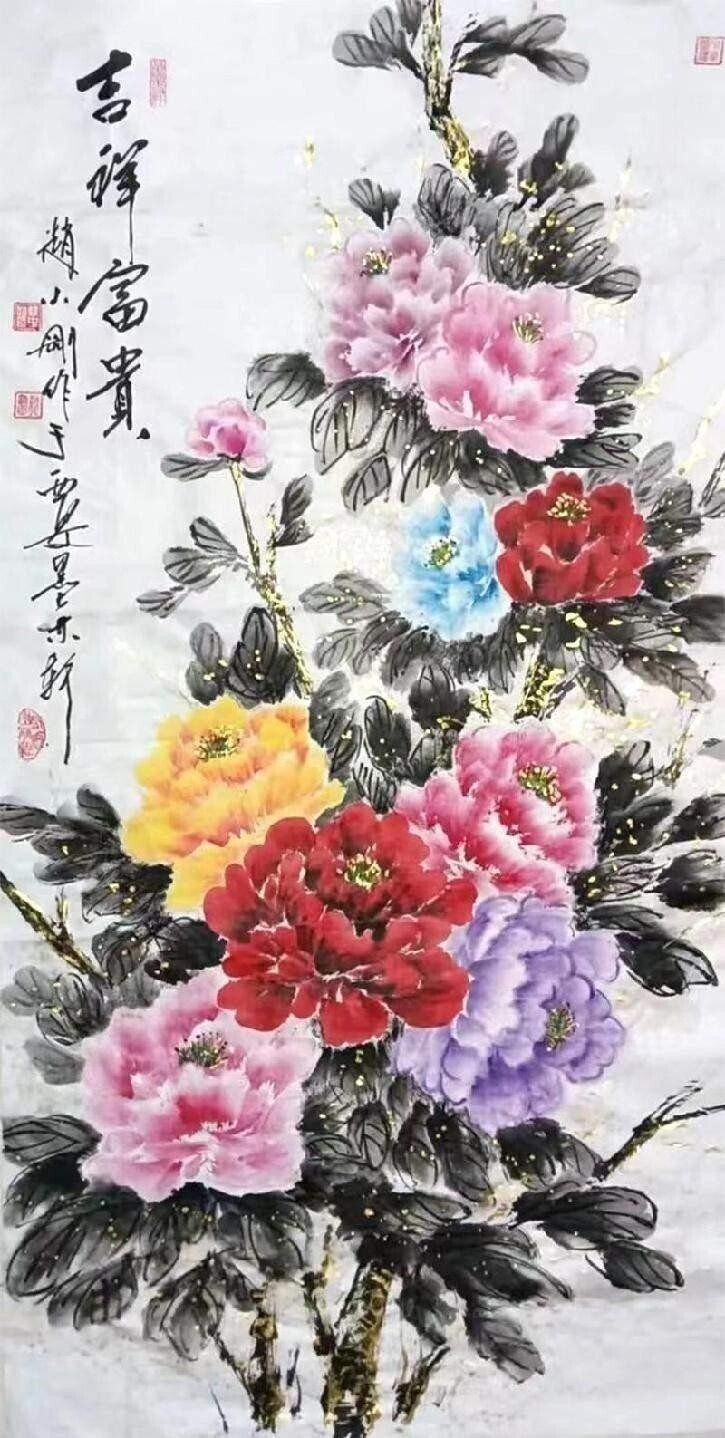 吉祥富貴
趙小剛作于西安墨木軒